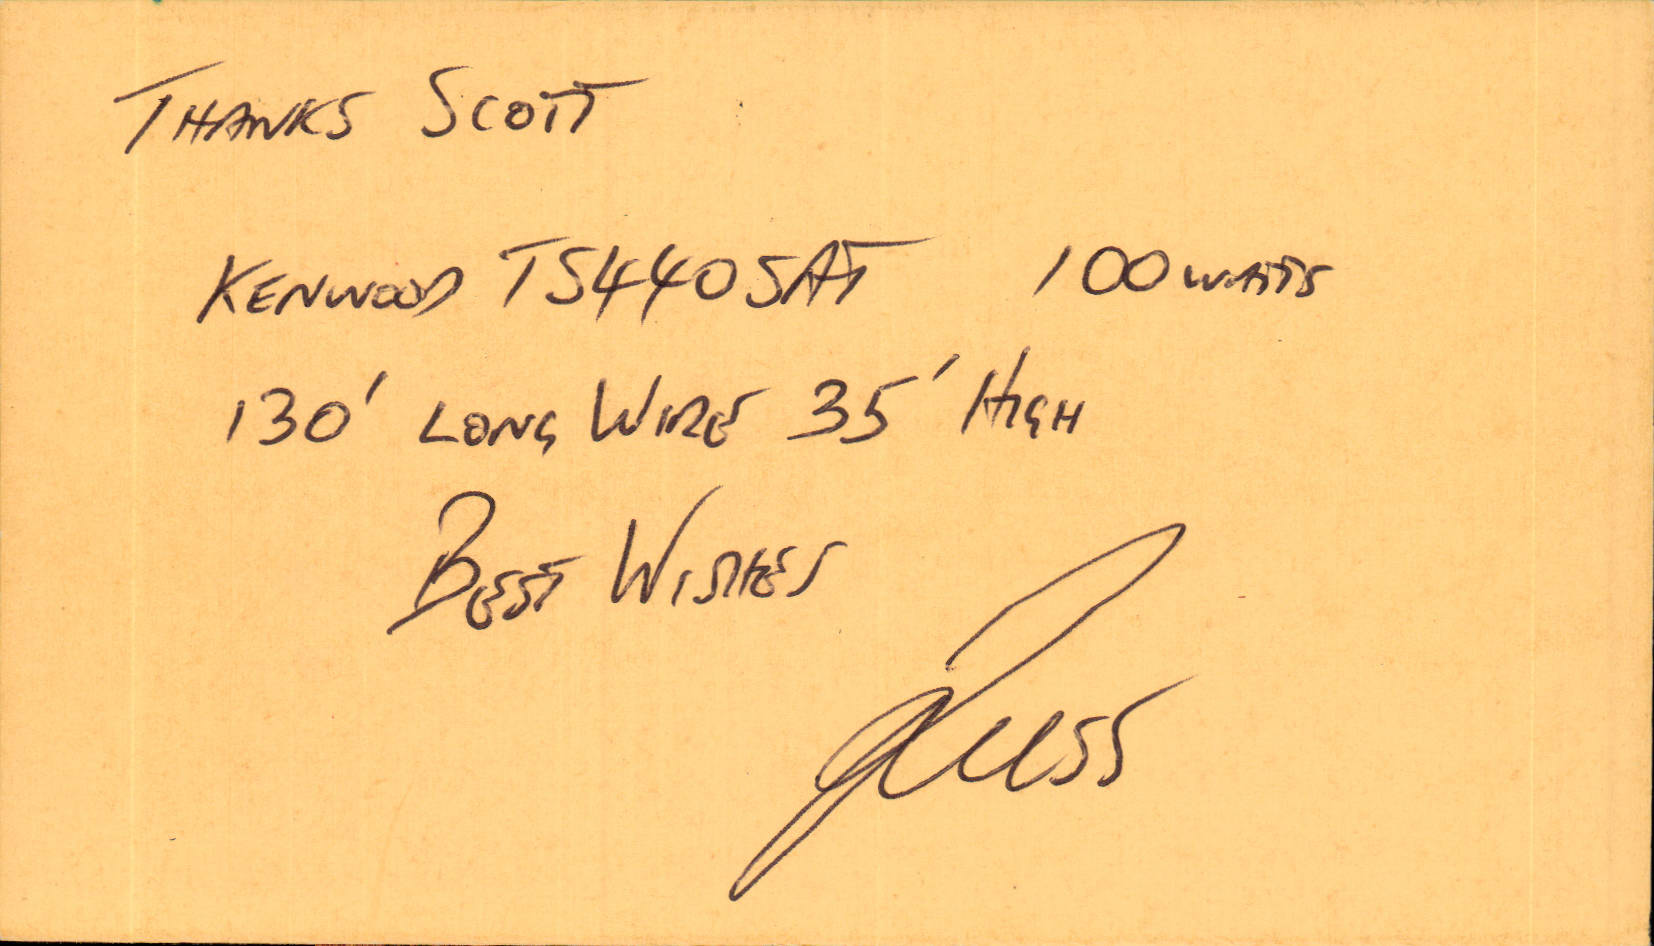 THANKS SCOTT
KENWOOD TS440SAT 100 WATTS
130' LONG WIRE 35' HIGH
BEST WISHES
Russ